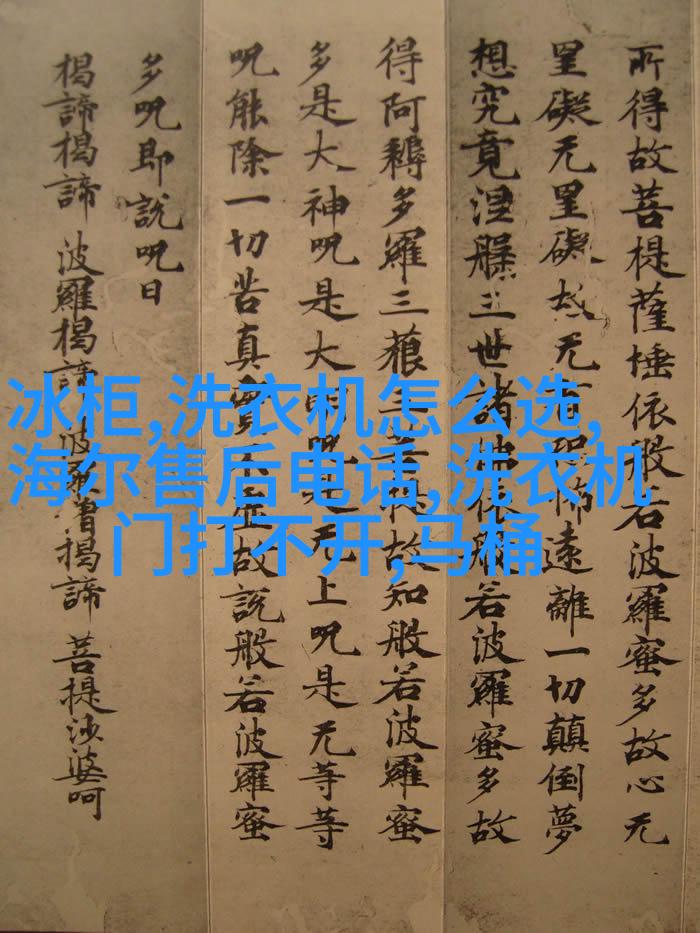 所得故菩提薩埵依般若波羅蜜多故心无
罣礙无罣礙故无有恐怖遠離一切顛倒夢
想究竟涅槃三世諸佛依般若波羅蜜多故
得阿耨多羅三藐三菩提故知般若波羅蜜
多是大神呪是大明呪是无上呪是无等等
呪能除一切苦真實不虛故說般若波羅蜜
多呪即說呪曰
揭諦揭諦 波羅揭諦 波羅僧揭諦 菩提沙婆呵
冰柜,洗衣机怎么选,
海尔售后电话,洗衣机
门打不开,马桶